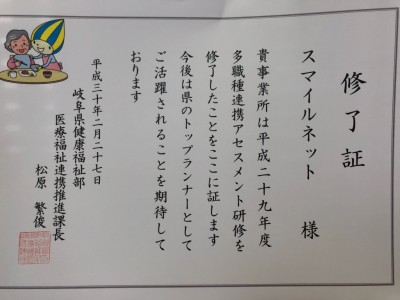 修了証
スマイルネット 様
貴事業所は平成二十九年度
多職種連携アセスメント研修を
修了したことをここに証します
今後は県のトップランナーとして
ご活躍されることを期待して
おります
平成三十年二月二十七日
岐阜県健康福祉部
医療福祉連携推進課長
松原 繁俊